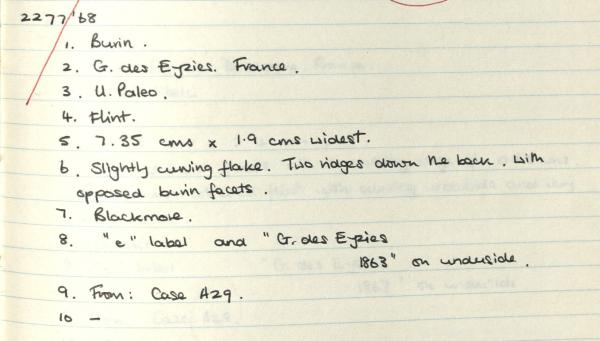 2277'68
1. Burin.
2. G. des Eyzies. France.
3. U. Paleo.
4. Flint.
5. 7.35 cms x 1.9 cms widest.
6. Slightly curving flake. Two ridges down the back. with
opposed burin facets.
7. Blackmore.
8. "e" label and "G. des Eyzies
1863" on underside.
9. From: Case A29.
10 —